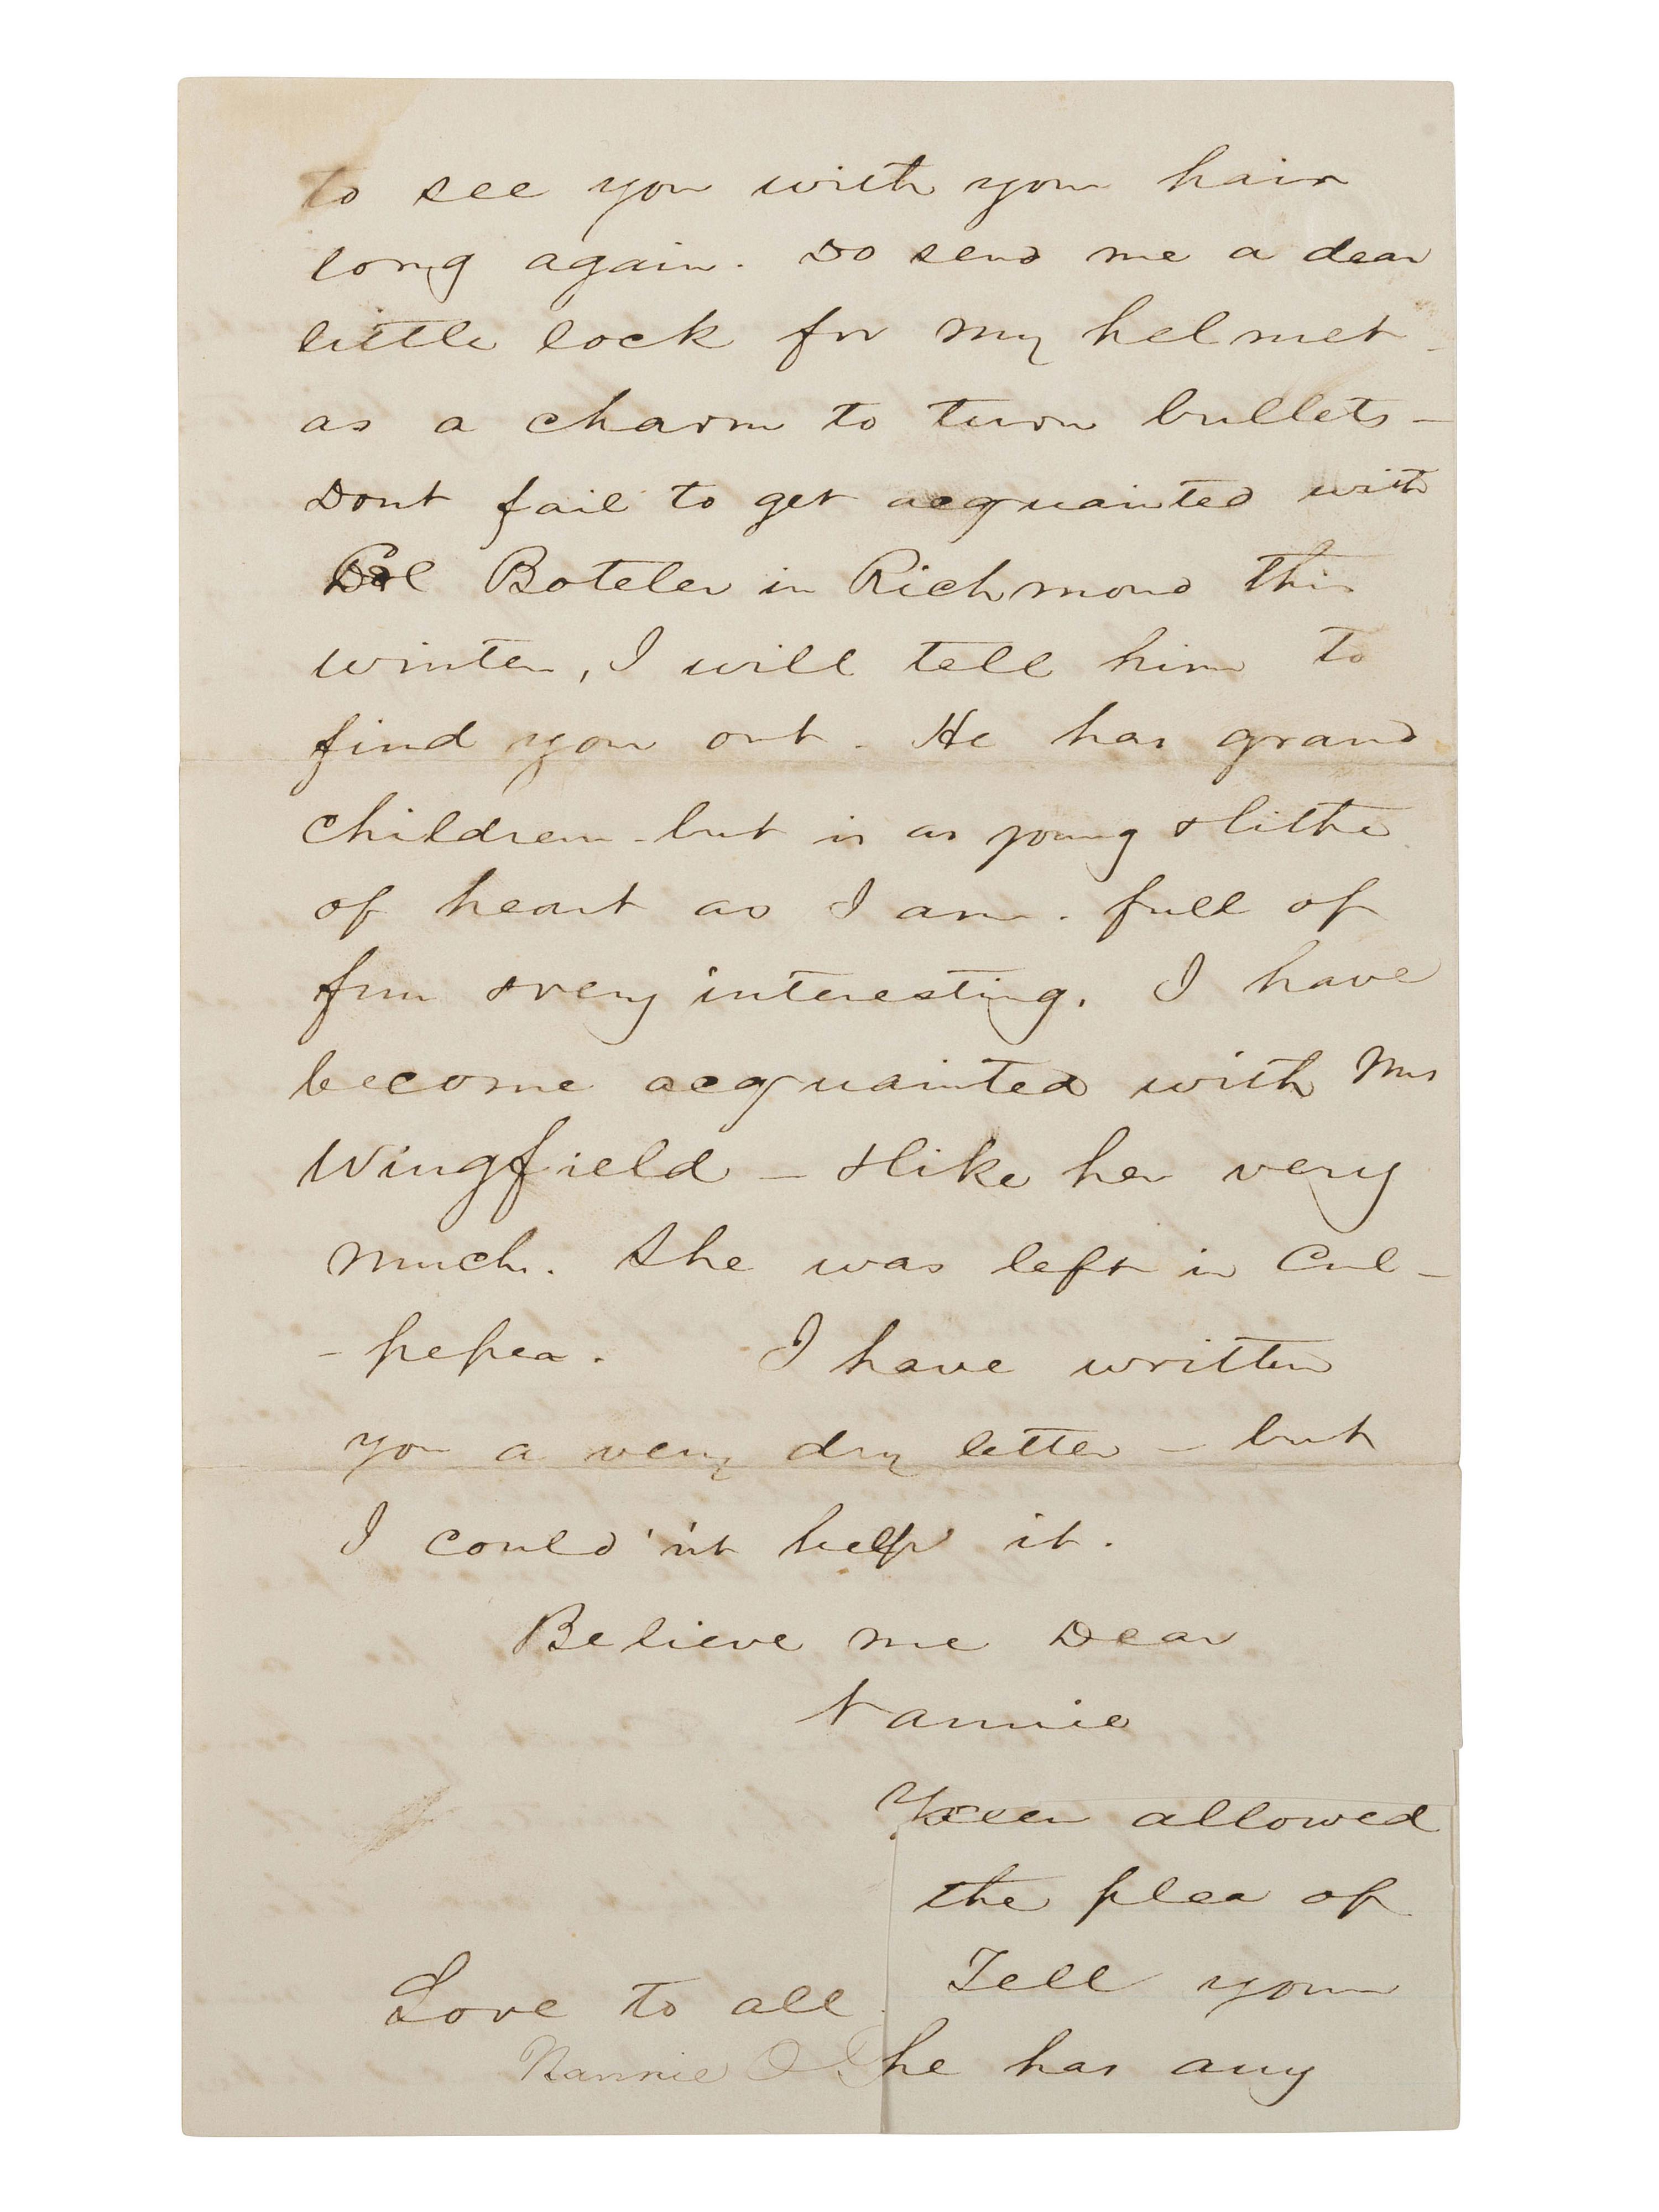 to see you with your hair
long again. Do send me a dear
little lock for my helmet -
as a charm to turn bullets -
Dont fail to get acquainted with
Col Boteler in Richmond this
winter, I will tell him to
find you out. He has grand
children - but is as young & lithe
of heart as I am. full of
fun & very interesting. I have
become acquainted with Mrs
Wingfield - & like her very
much. She was left in Cul-
-peper. I have written
you a very dry letter - but
I could 'nt help it.
Believe me Dear
Nannie
been allowed
the plea of
Tell your
Love to all
Nannie O he has any